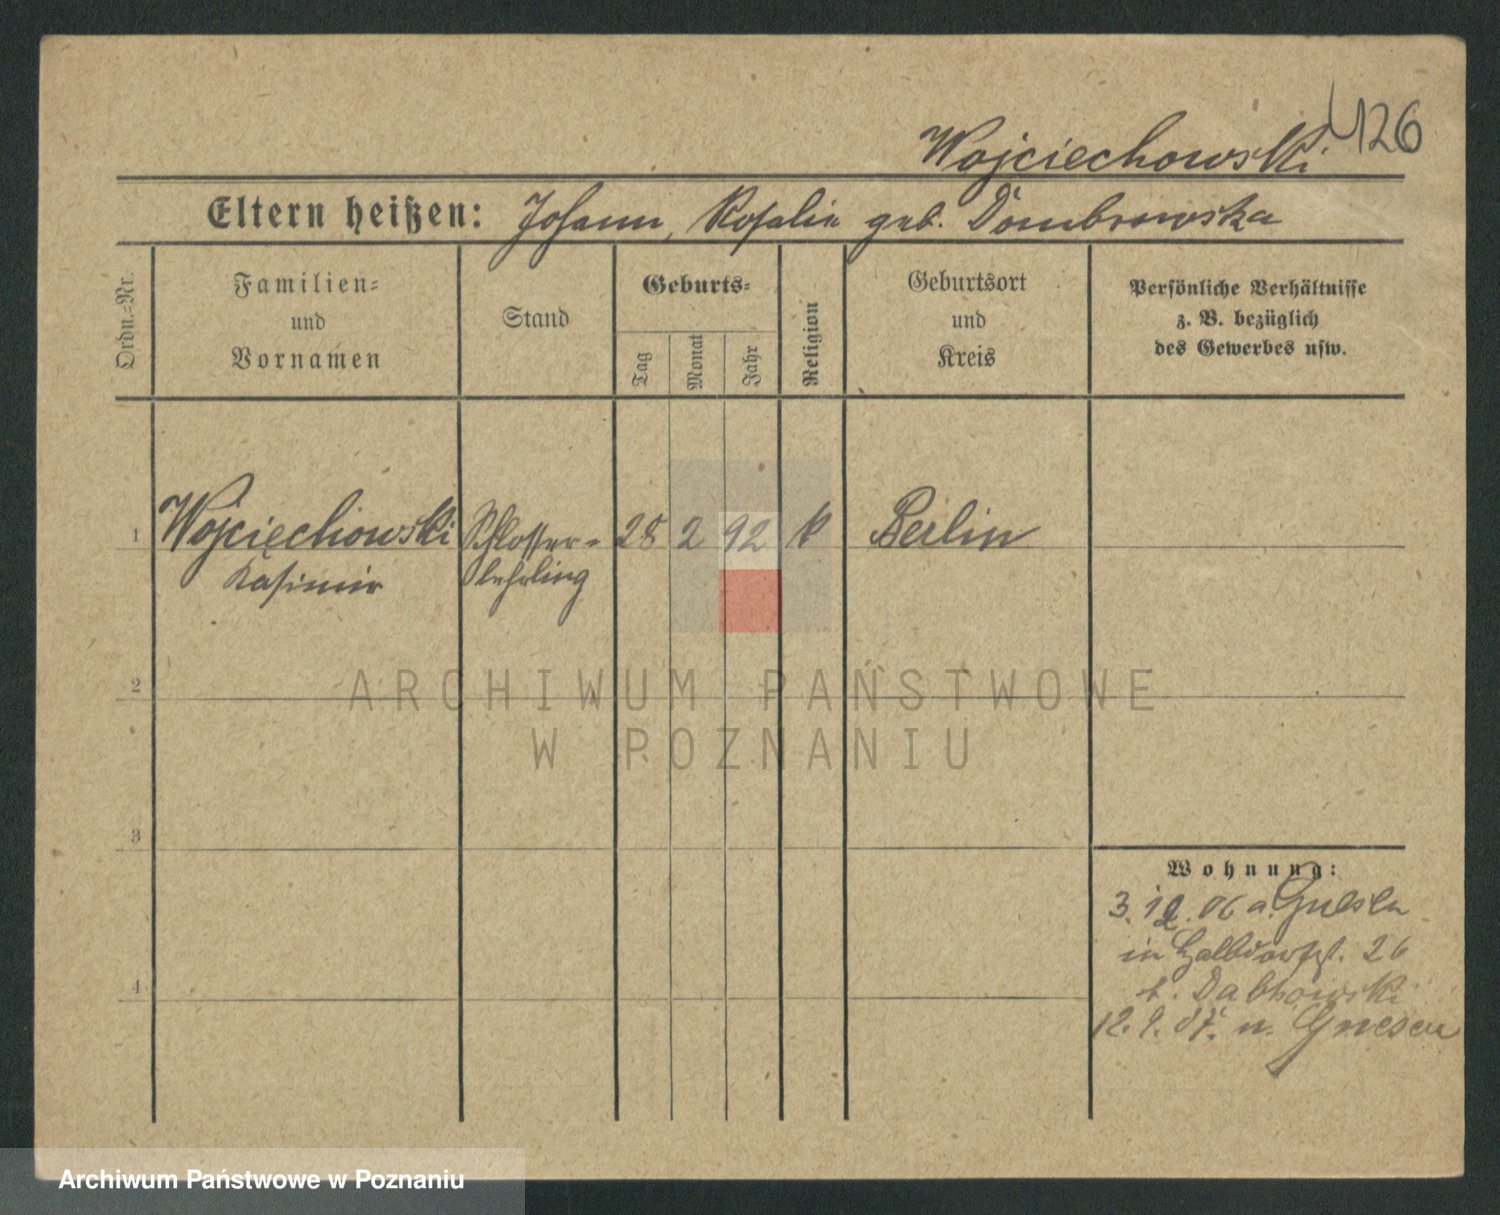 126
Wojciechowski
Eltern heißen: Johann, Rosalie geb. Dombrowska
Ordn.-Nr.
Familien-
und
Vornamen
Stand
Geburts-
Tag
Monat
Jahr
Religion
Geburtsort
und
Kreis
Persönliche Verhältnisse
z. B. bezüglich
des Gewerbes usw.
1 Wojciechowski Schlosser- 28 2 92 k Berlin
Kasimir lehrling
2
ARCHIWUM PAŃSTWOWE
W POZNANIU
3
Wohnung:
3. 12. 06 a. Gnesen
in Halbdorfst. 26
4
b. Dabkowski
12. 9. 07. n. Gnesen
Archiwum Państwowe w Poznaniu